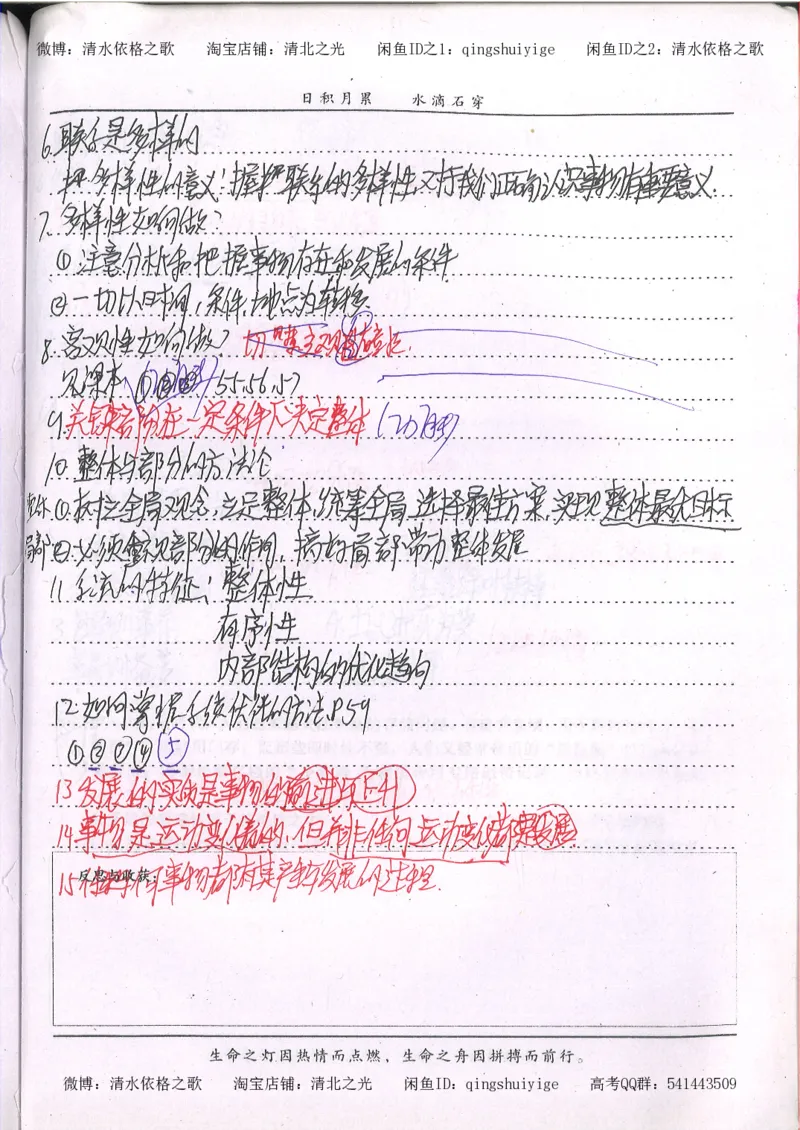 微博：清水依格之歌 淘宝店铺：清北之光 闲鱼ID之1：qingshuiyige 闲鱼ID之2：清水依格之歌
日积月累 水滴石穿
6.联系是多样的
把多样性的意义：握把联系的多样性，对我们正确认识事物有重要意义.
7.多样性如何做？
①注意分析和把握事物存在和发展的条件
②一切以时间，条件，地点为转移
8.客观性如何做？切
见课本 55.56.57
9.关键部分在一定条件下决定整体
10.整体与部分的方法论
整体①树立全局观念，立足整体，统筹全局，选择最佳方案，实现整体最优目标
局部②必须重视部分的作用，搞好局部带动整体发展
11.系统的特征：整体性
有序性
内部结构的优化趋向
12.如何掌握系统优化的方法P.59
①②③④⑤
13.发展的实质是事物的前进与上升
14.事物是运动变化的，但并非任何运动变化都是发展
反思与收获：
15. 事物都有其产生与发展的过程.
生命之灯因热情而点燃，生命之舟因拼搏而前行。
微博：清水依格之歌 淘宝店铺：清北之光 闲鱼ID：qingshuiyige 高考QQ群：541443509